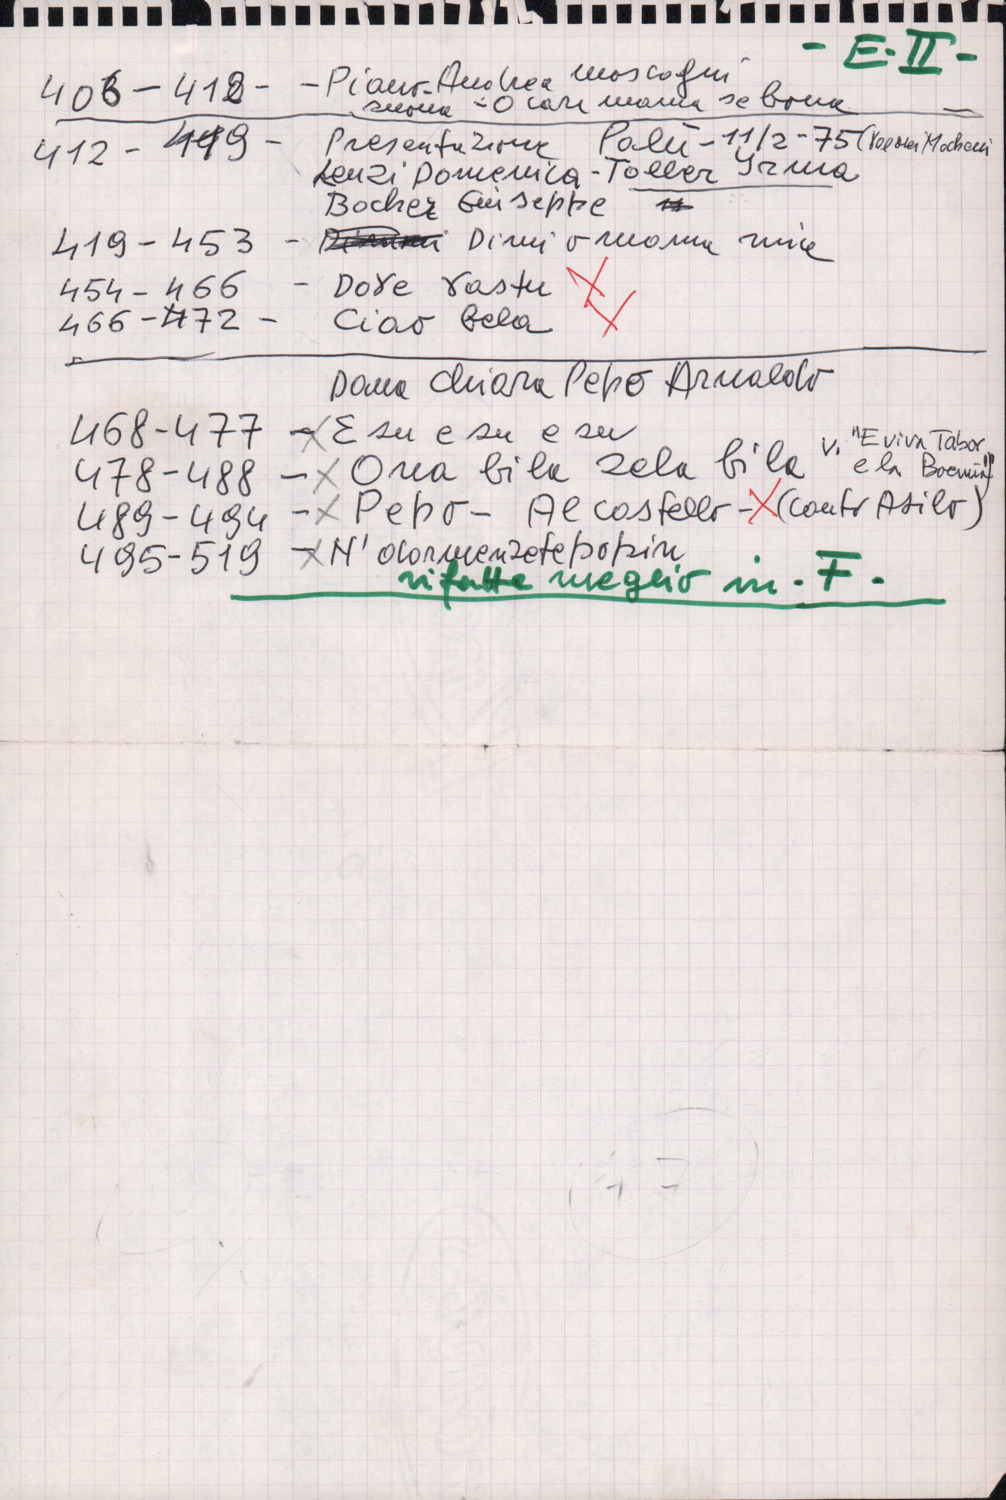 - E-II -
406-412 - - Piano-Andrea Moscagni
suona - O cara mama se bona
412-419 - Presentazione Palù-11/2-75 (Roveri Mocheni
Lenzi Domenica-Toller Irma
Bocher Giuseppe
419-453 - Dimi o mama mia
454-466 - Dove vastu X
466-472 - Ciao bela X
Dama Chiara Pepo Arnaldo
468-477 -X E su e su e su
478-488 -X Ora bila zela bila v. "Eviva Tabor
e la Boemia"
489-494 -X Pepo- Al castello -X (canto Asilo)
495-519 -X N'dormenzete popin
rifatte meglio in . F .